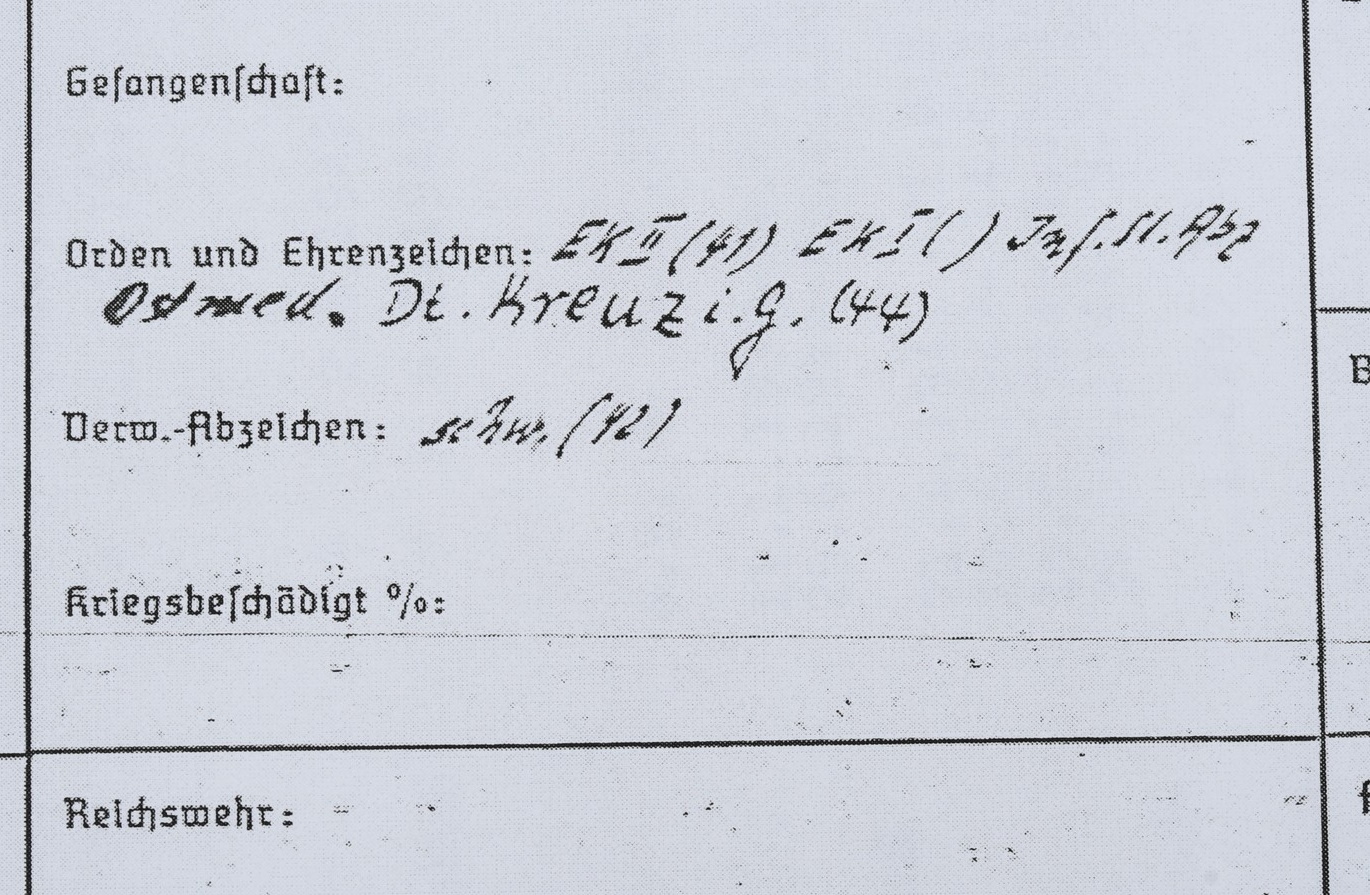 Gefangenschaft:
Orden und Ehrenzeichen: EK II (41) EK I ( ) Inf. St. Abz
Ostmed. Dt. Kreuz i. G. (44)
Verw.-Abzeichen: schw. (42)
Kriegsbeschädigt %:
Reichswehr: -